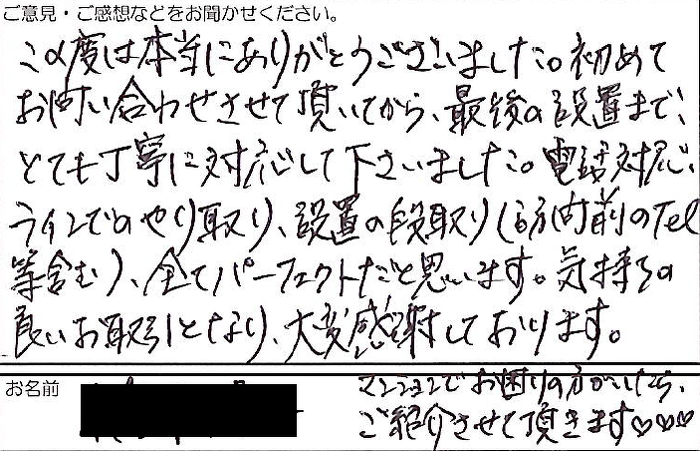 ご意見・ご感想などをお聞かせください。
この度は本当にありがとうございました。初めて
お問い合わせさせて頂いてから、最後の設置まで、
とても丁寧に対応して下さいました。電話対応、
ラインでのやり取り、設置の段取り(訪問前のTel
等含む)、全てパーフェクトだと思います。気持ちの
良いお取引となり、大変感謝しております。
お名前
マンションでお困りの方がいしたら、
ご紹介させて頂きます♡♡♡